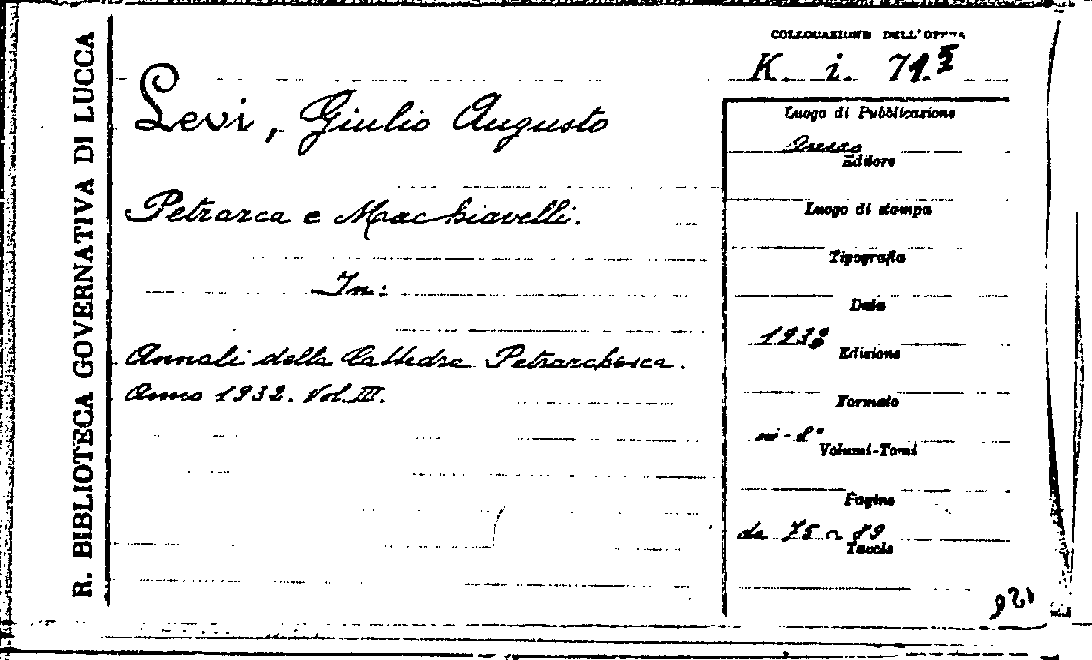 R. BIBLIOTECA GOVERNATIVA DI LUCCA
COLLOCAZIONE DELL'OPERA
K. i. 71.
Levi, Giulio Augusto
Petrarca e Machiavelli.
In:
Annali della Cattedra Petrarchesca.
Anno 1932. Vol. III.
Luogo di Pubblicazione
Arezzo
Editore
Luogo di stampa
Tipografia
Data
1932
Edizione
Formato
in-8°
Volumi-Tomi
Pagine
da 75 a 89
Tavole